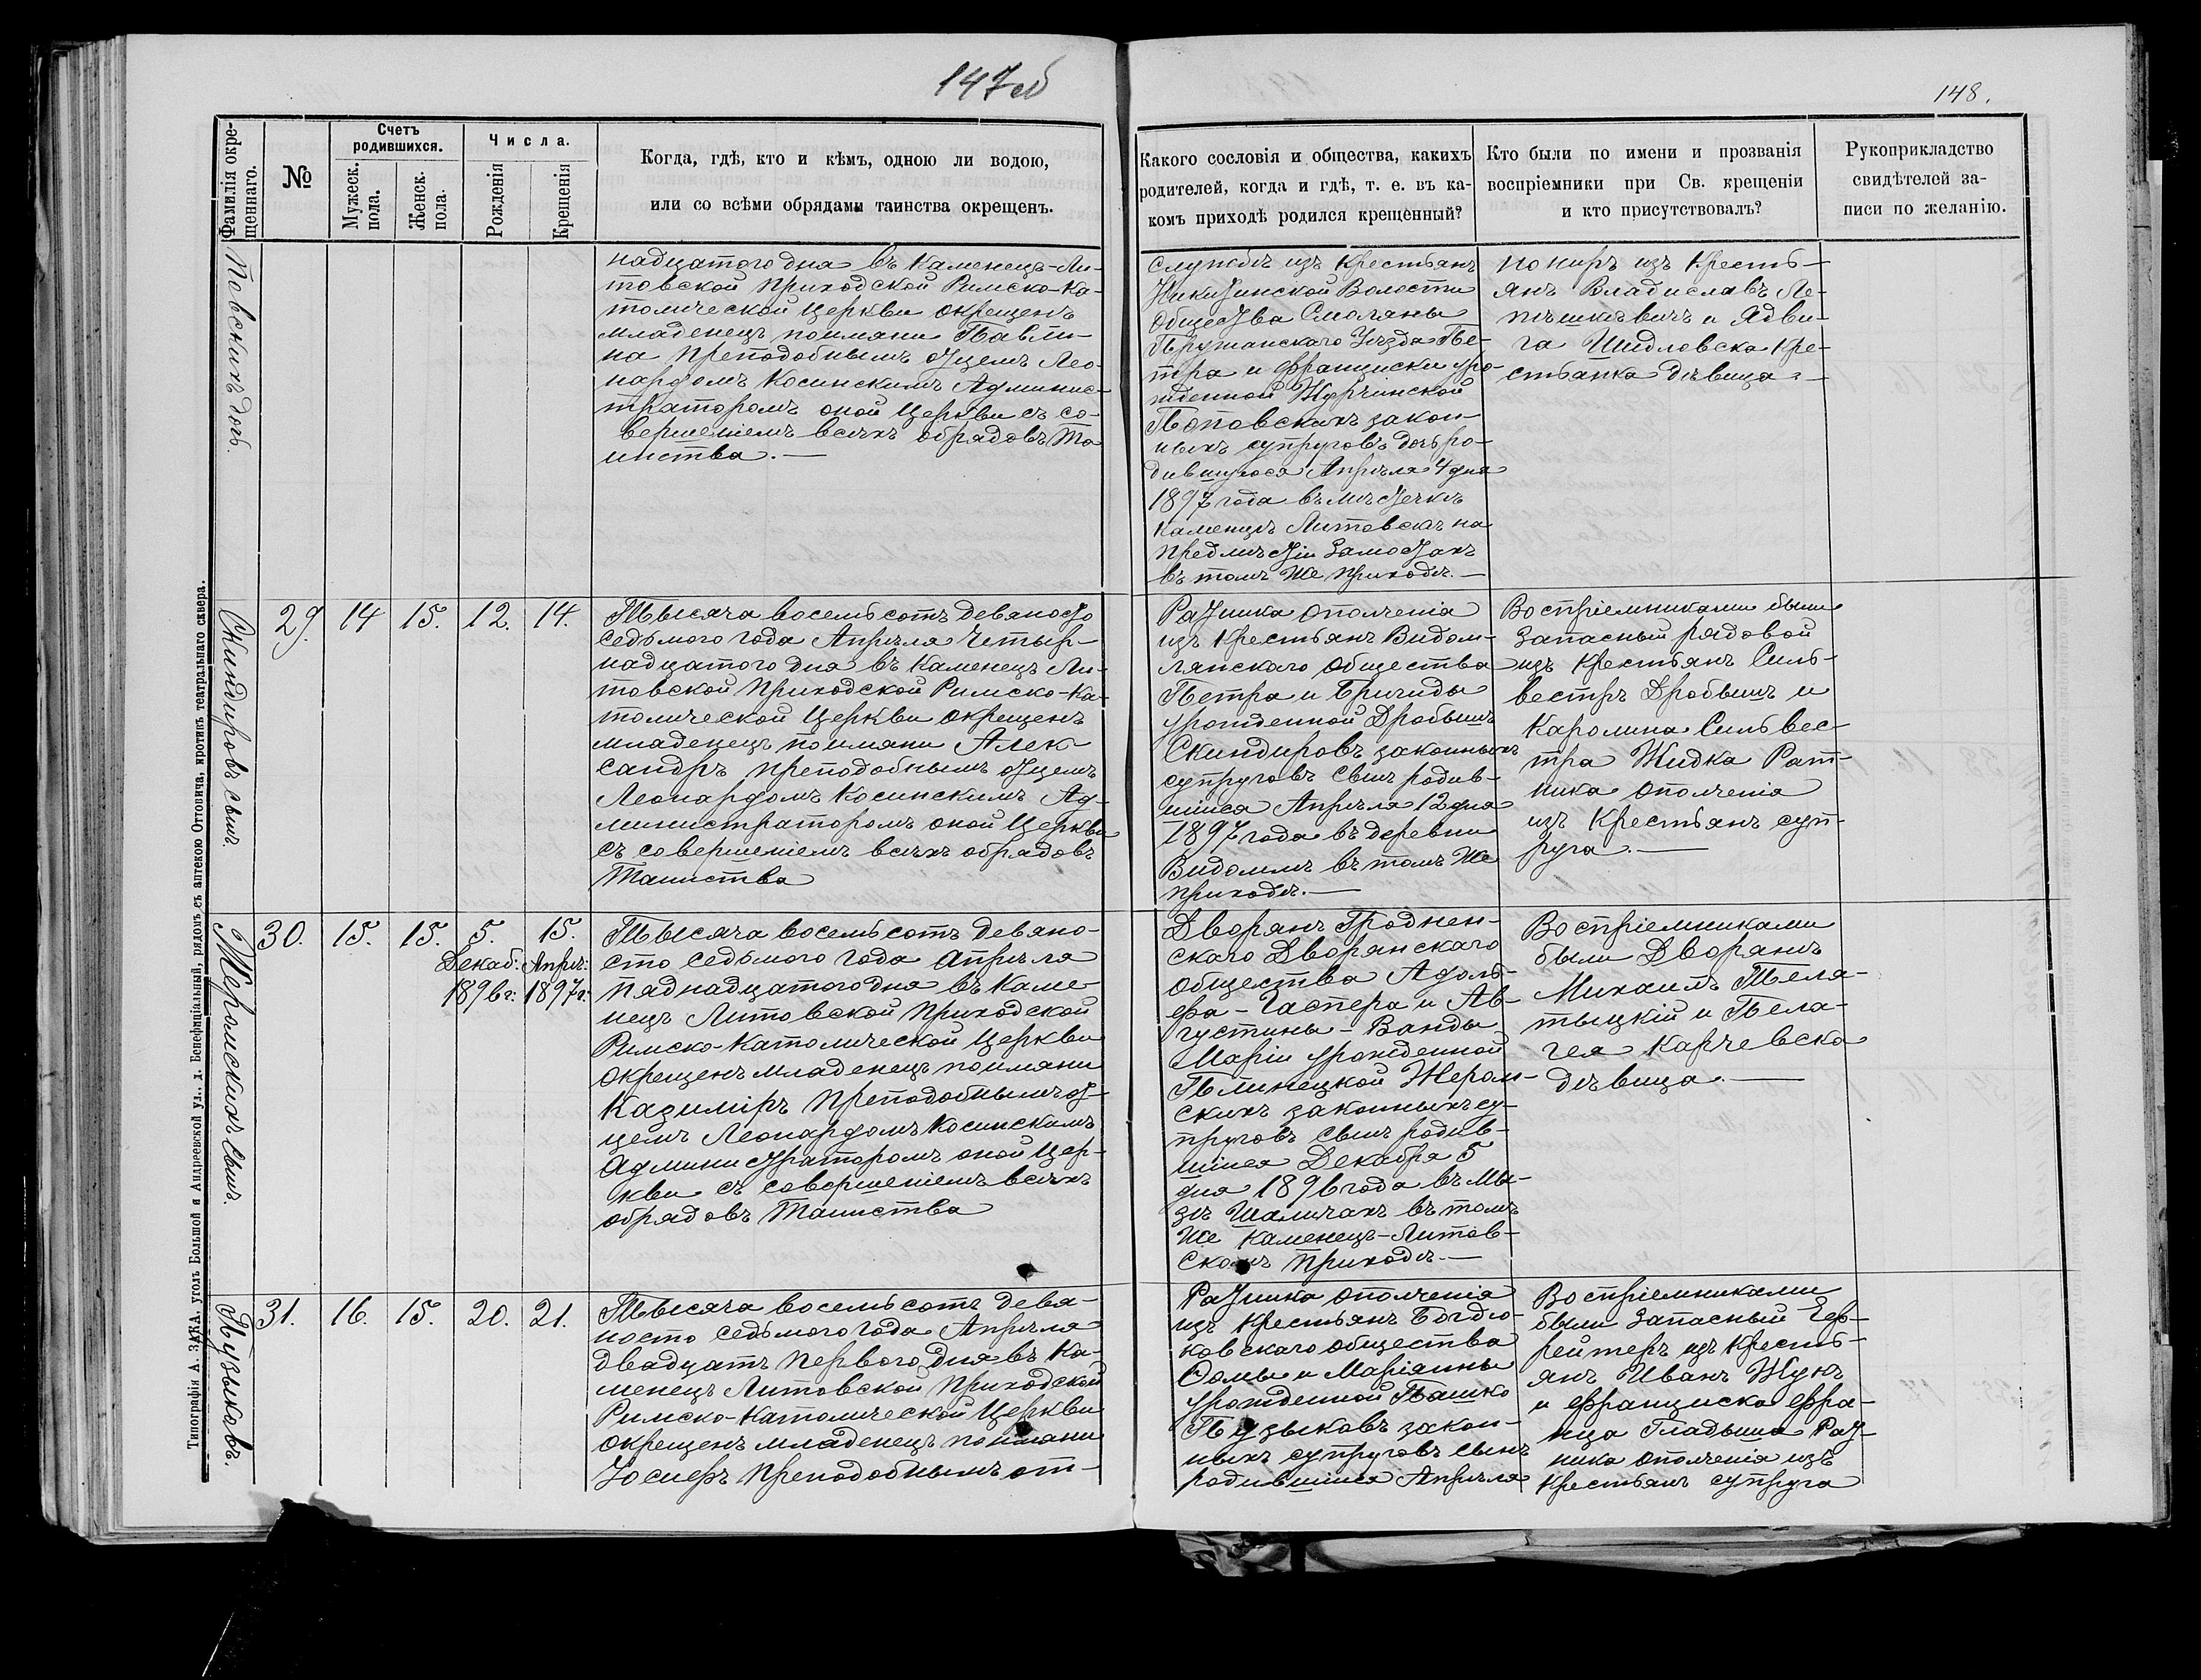 147об
148.
Фамилія окрещеннаго.
№
Счетъ родившихся.
Мужеск. пола.
Женск. пола.
Числа.
Рожденія
Крещенія
Когда, гдѣ, кто и кѣмъ, одною ли водою,
или со всѣми обрядами таинства окрещенъ.
Какого сословія и общества, какихъ
родителей, когда и гдѣ, т. е. въ ка-
комъ приходѣ родился крещенный?
Кто были по имени и прозванія
воспріемники при Св. крещеніи
и кто присутствовалъ?
Рукоприкладство
свидѣтелей за-
писи по желанію.
повскихъ дочь.
надцатого дня въ Каменецъ-Ли-
товской Приходской Римско-Ка-
толической Церкви окрещенъ
младенецъ поимяни Павли-
на Преподобнымъ отцемъ Лео-
нардомъ Косинскимъ Админис-
траторомъ оной Церкви съ со-
вершеніемъ всѣхъ обрядовъ Та
инства.—
службѣ изъ Крестьянъ
Волости
Общества Смоляны
Пружанскаго Уѣзда Пе-
тра и Франциски уро-
жденной
Поповскихъ закон-
ныхъ супруговъ дочь ро-
дившуюся Апрѣля 4 дня
1897 года въ мѣстечкѣ
Каменцѣ Литовскѣ на
предмѣстіи Замостахъ
въ томъ же приходѣ.—
изъ Кресть-
янъ Владиславъ Ле-
пѣшкѣвичъ и Ядви-
га Шидловска Кре-
стьянка дѣвица.—
Скиндировъ сынъ.
29. 14 15. 12. 14.
Тысяча восемьсотъ девяносто
седьмого года Апрѣля Четыр-
надцатого дня въ Каменецъ Ли-
товской Приходской Римско-Ка-
толической Церкви окрещенъ
младенецъ поимяни Алек
сандръ преподобнымъ отцемъ
Леонардомъ Косинскимъ Ад-
министраторомъ оной Церкви
съ совершеніемъ всѣхъ обрядовъ
Таинства
Ратника ополченія
изъ Крестьянъ Видом-
лянскаго общества
Петра и Бригиды
урожденной Дробышъ
Скиндировъ законныхъ
супруговъ сынъ родив-
шійся Апрѣля 12 дня
1897 года въ деревни
Видомлѣ въ томъ же
приходѣ.—
Воспріемниками были
Запасный рядовой
изъ Крестьянъ Силь-
вестръ Дробышъ и
Каролина Сильвес-
тра Жидка Рат-
ника ополченія
изъ Крестьянъ суп-
руга.—
Жеромскихъ сынъ.
30. 15. 15. 5. 15.
Декаб: Апрѣ:
1896 г: 1897 г:
Тысяча восемьсотъ девяно-
сто седьмого года Апрѣля
пяднадцатого дня въ Каме
нецъ Литовской Приходской
Римско-Католической Церкви
окрещенъ младенецъ поимяни
Казиміръ преподобнымъ от-
цемъ Леонардомъ Косинскимъ
Администраторомъ оной Цер-
кви съ совершеніемъ всѣхъ
обрядовъ Таинства
Дворянъ Гроднен-
скаго Дворянскаго
общества Адоль-
фа-Гаспера и Ав-
густины-Ванды
Маріи урожденной
Жером-
скихъ законныхъ су-
пруговъ сынъ родив-
шійся Декабря 5
дня 1896 года въ Мы-
зѣ Шаличахъ въ томъ
же Каменецъ-Литов-
скомъ приходѣ.—
Воспріемниками
были Дворянъ
Михаилъ Теля-
тыцкій и Пела-
гея Карчевска
дѣвица.—
Пузыковъ.
31. 16. 15. 20. 21.
Тысяча восемьсотъ девя-
носто седьмого года Апрѣля
двадцать перваго дня въ Ка-
менецъ Литовской Приходской
Римско-Католической Церкви
окрещенъ младенецъ поимяни
Іосифъ Преподобнымъ от-
Ратника ополченія
изъ Крестьянъ Богдю-
ковскаго общества
Ѳомы и Маріянны
урожденной Пашко
Пузыковъ закон-
ныхъ супруговъ сынъ
родившійся Апрѣля
Воспріемниками
были Запасный Еф-
рейтеръ изъ Кресть-
янъ Иванъ Жукъ
и Франциска Фра-
нца Гладыша Рат-
ника ополченія изъ
Крестьянъ супруга
Типографія А. ЗАКА, уголъ Большой и Андреевской ул., д. Бенефиціальный, рядомъ съ аптекою Оттовича, противъ театральнаго сквера.